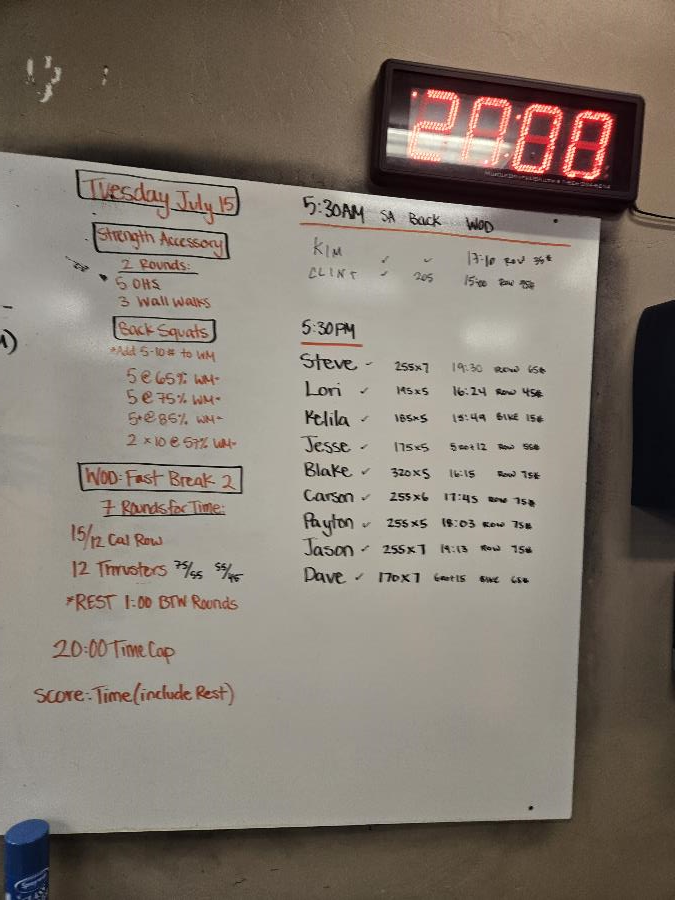 20:00
Tuesday July 15
Strength Accessory
2 Rounds:
5 OHS
3 Wall Walks
Back Squats
*Add 5-10# to WM
5 @ 65% WM
5 @ 75% WM
5+ @ 85% WM
2 x 10 @ 57% WM
WOD: Fast Break 2
7 Rounds for Time:
15/12 Cal Row
12 Thrusters 75/55 55/45
*REST 1:00 BTW Rounds
20:00 Time Cap
Score: Time (include Rest)
5:30AM SA Back WOD
KIM ✓ ✓ 17:10 Row 35#
CLINT ✓ 205 15:00 Row 95#
5:30PM
Steve - 255x7 19:30 ROW 65#
Lori ✓ 195x5 16:24 Row 45#
Kelila ✓ 185x5 15:49 BIKE 15#
Jesse ✓ 175x5 5+12 Row 55#
Blake ✓ 320x5 16:15 Row 75#
Carson ✓ 255x6 17:45 Row 75#
Payton ✓ 255x5 18:03 Row 75#
Jason ✓ 255x7 19:13 Row 75#
Dave ✓ 170x7 +15 BIKE 65#